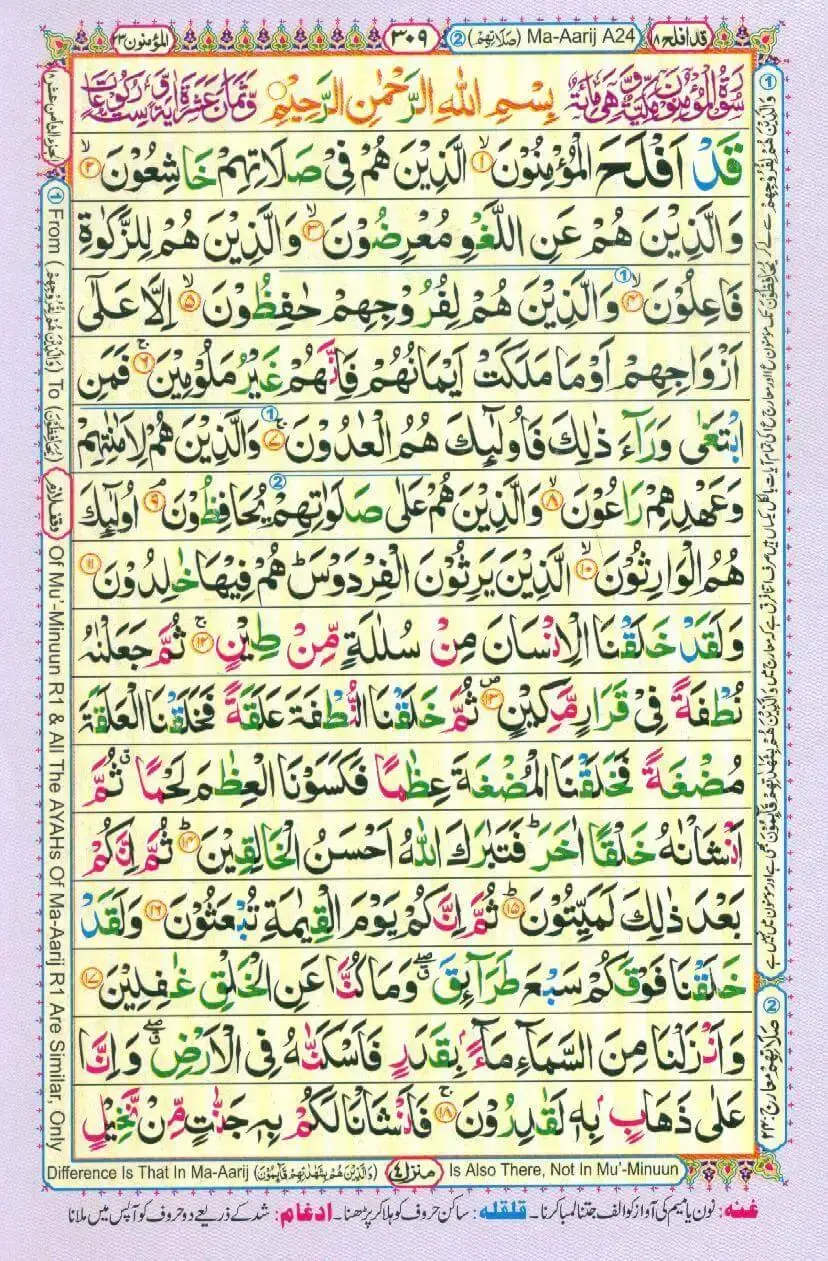 المؤمنون ٢٣
٣٠٩
② (صَلَاتِهِمْ) Ma-Aarij A24
قد افلح ١٨
سُوْرَةُ الْمُؤْمِنُوْنَ مَكِّيَّةٌ وَّهِيَ مِائَةٌ بِسْمِ اللهِ الرَّحْمٰنِ الرَّحِيْمِ وَّثَمَانَ عَشْرَةَ اٰيَةً وَّسِتُّ رُكُوْعَاتٍ
قَدْ اَفْلَحَ الْمُؤْمِنُوْنَ ۙ﴿١﴾ الَّذِيْنَ هُمْ فِيْ صَلَاتِهِمْ خَاشِعُوْنَ ۙ﴿٢﴾
وَالَّذِيْنَ هُمْ عَنِ اللَّغْوِ مُعْرِضُوْنَ ۙ﴿٣﴾ وَالَّذِيْنَ هُمْ لِلزَّكٰوةِ
فَاعِلُوْنَ ۙ﴿٤﴾ ① وَالَّذِيْنَ هُمْ لِفُرُوْجِهِمْ حٰفِظُوْنَ ۙ﴿٥﴾ اِلَّا عَلٰٓى
اَزْوَاجِهِمْ اَوْ مَا مَلَكَتْ اَيْمَانُهُمْ فَاِنَّهُمْ غَيْرُ مَلُوْمِيْنَ ۚ﴿٦﴾ فَمَنِ
ابْتَغٰى وَرَآءَ ذٰلِكَ فَاُولٰٓئِكَ هُمُ الْعٰدُوْنَ ۚ﴿٧﴾ ① وَالَّذِيْنَ هُمْ لِاَمٰنٰتِهِمْ
وَعَهْدِهِمْ رَاعُوْنَ ۙ﴿٨﴾ وَالَّذِيْنَ هُمْ عَلٰى صَلَوٰتِهِمْ ② يُحَافِظُوْنَ ۘ﴿٩﴾ اُولٰٓئِكَ
هُمُ الْوَارِثُوْنَ ۙ﴿١٠﴾ الَّذِيْنَ يَرِثُوْنَ الْفِرْدَوْسَ ؕ هُمْ فِيْهَا خٰلِدُوْنَ ﴿١١﴾
وَلَقَدْ خَلَقْنَا الْاِنْسَانَ مِنْ سُلٰلَةٍ مِّنْ طِيْنٍ ۚ﴿١٢﴾ ثُمَّ جَعَلْنٰهُ
نُطْفَةً فِيْ قَرَارٍ مَّكِيْنٍ ۪﴿١٣﴾ ثُمَّ خَلَقْنَا النُّطْفَةَ عَلَقَةً فَخَلَقْنَا الْعَلَقَةَ
مُضْغَةً فَخَلَقْنَا الْمُضْغَةَ عِظٰمًا فَكَسَوْنَا الْعِظٰمَ لَحْمًا ۗ ثُمَّ
اَنْشَاْنٰهُ خَلْقًا اٰخَرَ ؕ فَتَبٰرَكَ اللهُ اَحْسَنُ الْخَالِقِيْنَ ؕ﴿١٤﴾ ثُمَّ اِنَّكُمْ
بَعْدَ ذٰلِكَ لَمَيِّتُوْنَ ؕ﴿١٥﴾ ثُمَّ اِنَّكُمْ يَوْمَ الْقِيٰمَةِ تُبْعَثُوْنَ ﴿١٦﴾ وَلَقَدْ
خَلَقْنَا فَوْقَكُمْ سَبْعَ طَرَآئِقَ ۖ وَمَا كُنَّا عَنِ الْخَلْقِ غٰفِلِيْنَ ﴿١٧﴾
وَاَنْزَلْنَا مِنَ السَّمَآءِ مَآءًۢ بِقَدَرٍ فَاَسْكَنّٰهُ فِي الْاَرْضِ ۖ وَاِنَّا
عَلٰى ذَهَابٍۭ بِهٖ لَقٰدِرُوْنَ ۚ﴿١٨﴾ فَاَنْشَاْنَا لَكُمْ بِهٖ جَنّٰتٍ مِّنْ نَّخِيْلٍ
① From (وَالَّذِيْنَ هُمْ لِفُرُوْجِهِمْ) To (يُحَافِظُوْنَ) وقف لازم Of Mu'-Minuun R1 & All The AYAHs Of Ma-Aarij R1 Are Similar, Only
Difference Is That In Ma-Aarij (وَالَّذِيْنَ هُمْ بِشَهٰدٰتِهِمْ قَآئِمُوْنَ) منزل ٤ Is Also There, Not In Mu'-Minuun
② صَلَاتِهِمْ معارج: ٢٣
غنه: نون یا میم کی آواز کو الف جتنا لمبا کرنا۔ قلقله: ساکن حروف کو ہلا کر پڑھنا۔ ادغام: شد کے ذریعے دو حروف کو آپس میں ملانا